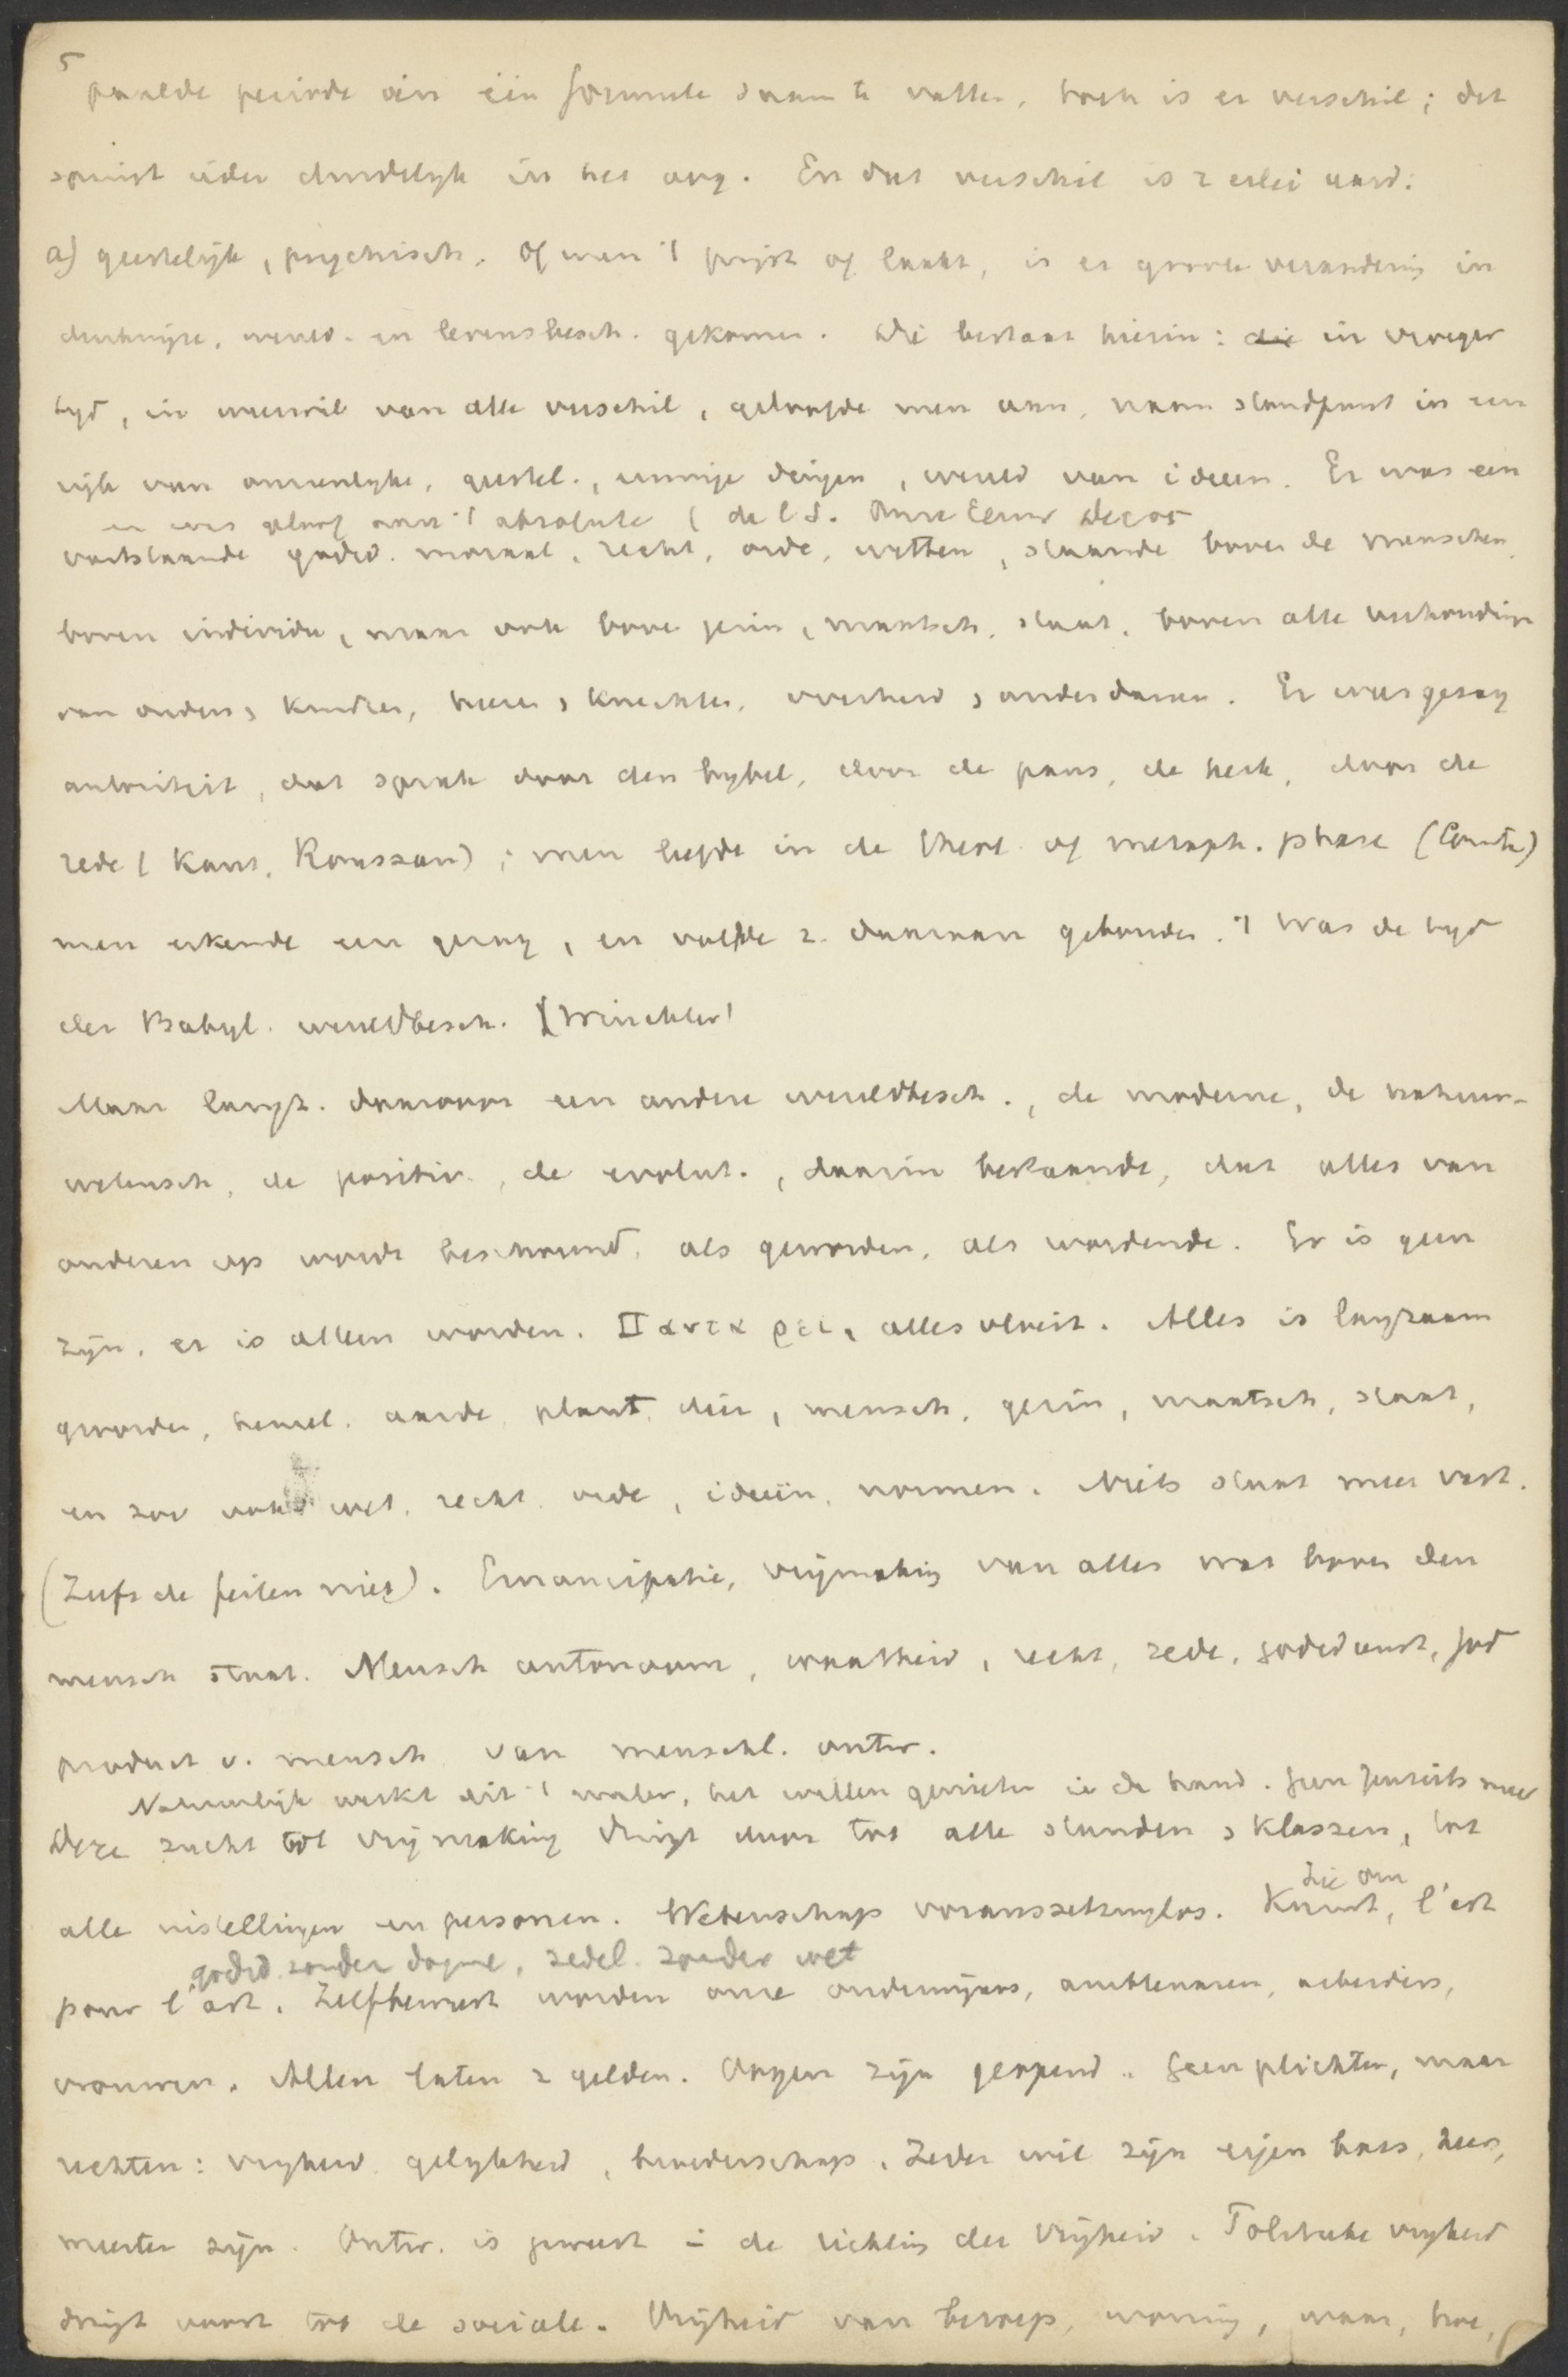 5
paalde periode in één formule saam te vatten, toch is er verschil; dat
springt ieder duidelijk in het oog. En dat verschil is 2 erlei aard:
a) geestelijk, psychisch. Of men 't prijst of laakt, is er groote verandering in
denkwijze, wereld- en levensbesch. gekomen. Die bestaat hierin: die in vroeger
tijd, in weerwil van alle verschil, geloofde men aan, nam standpunt in een
rijk van onzienlijke, geestel., eeuwige dingen, wereld van ideeen. Er was een
er was geloof aan 't absolute (
vaststaande godsd. moraal, recht, orde, wetten, staande boven de menschen,
boven individu, maar ook boven gezin, maatsch, staat, boven alle verhoudingen
van ouders, kinders, heeren, knechten, overheid, onderdanen. Er was gezag
autoriteit, dat sprak door den bybel, door de paus, de kerk, door de
rede (Kant, Rousseau); men leefde in de theol. of metaph. phase (Comte)
men erkende een gezag, en voelde z. daaraan gebonden. 't Was de tyd
der Babyl. wereldbesch. (Winckler)
Maar langz. daarvoor een andere wereldbesch., de moderne, de natuur-
wetensch, de positiv., de evolut., daarin bestaande, dat alles van
anderen op wordt beschouwd, als geworden, als wordende. Er is geen
zijn, er is alleen worden. Παντα ρει, alles vloeit. Alles is langzaam
geworden, hemel, aarde, plant, dier, mensch, gezin, maatsch, staat,
en zoo ook wet, recht, orde, ideeën, normen. Niets staat meer vast.
(Zelfs de feiten niet). Emancipatie, vrijmaking van alles wat boven den
mensch staat. Mensch autonoom, waarheid, recht, zede, godsdienst, God
product v. mensch, van menschl. ontw.
Natuurlijk werkt dit 't mater., het willen genieten in de hand. Geen Jenseits meer
Deze zucht tot vrijmaking dringt door tot alle standen, klassen, tot
alle instellingen en personen. Wetenschap voraussetzungslos. Kunst, l'art
pour l'art. Zelfbewust worden onze onderwijzers, ambtenaren, arbeiders,
godsd. zonder dogme, zedel. zonder wet
vrouwen. Allen laten z gelden. Oogen zijn geopend. Geen plichten, maar
rechten: vryheid, gelykheid, broederschap. Ieder wil zijn eigen baas, heer,
meester zijn. Ontw. is geweest in de richting der Vrijheid. Politieke vryheid
dringt voort tot de sociale. Vrijheid van beroep, woning, waar, hoe,